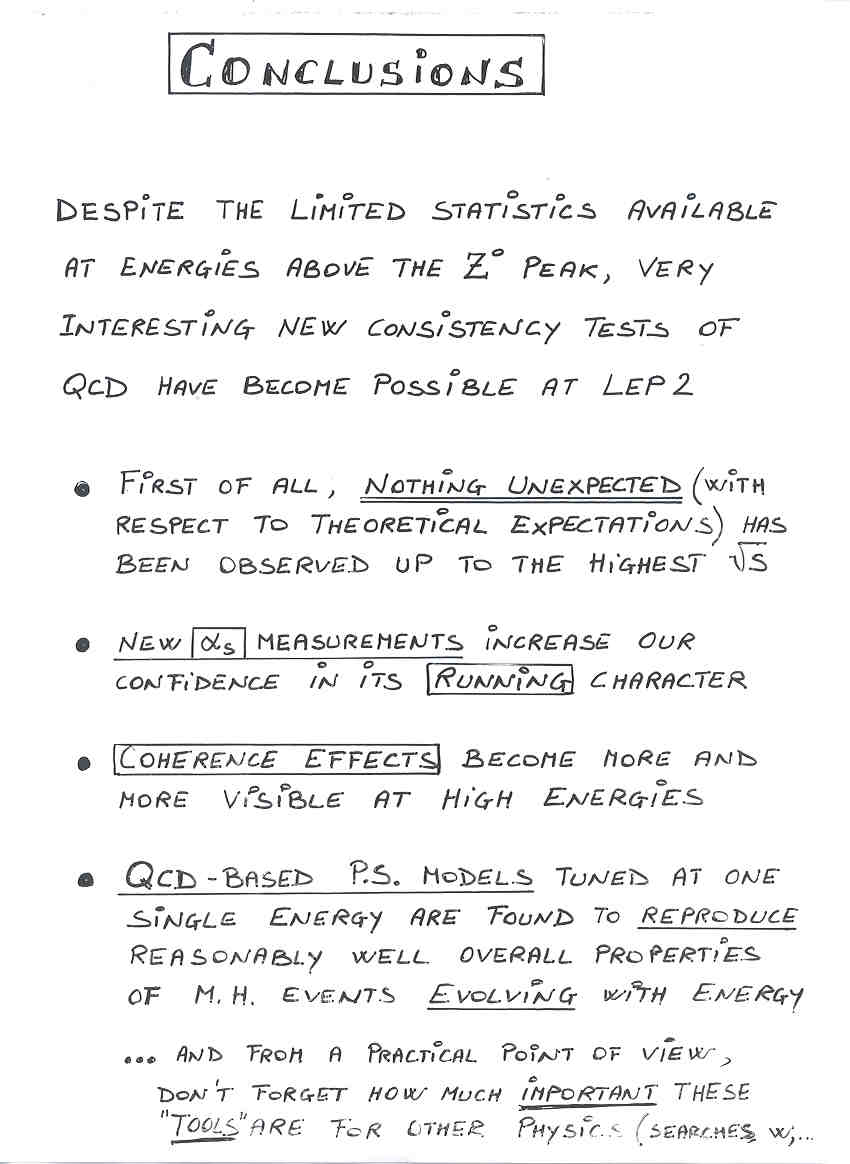 CONCLUSIONS
DESPITE THE LIMITED STATISTICS AVAILABLE
AT ENERGIES ABOVE THE Z° PEAK, VERY
INTERESTING NEW CONSISTENCY TESTS OF
QCD HAVE BECOME POSSIBLE AT LEP2
• FIRST OF ALL, NOTHING UNEXPECTED (WITH
RESPECT TO THEORETICAL EXPECTATIONS) HAS
BEEN OBSERVED UP TO THE HIGHEST √S
• NEW αs MEASUREMENTS INCREASE OUR
CONFIDENCE IN ITS RUNNING CHARACTER
• COHERENCE EFFECTS BECOME MORE AND
MORE VISIBLE AT HIGH ENERGIES
• QCD-BASED P.S. MODELS TUNED AT ONE
SINGLE ENERGY ARE FOUND TO REPRODUCE
REASONABLY WELL OVERALL PROPERTIES
OF M.H. EVENTS EVOLVING WITH ENERGY
... AND FROM A PRACTICAL POINT OF VIEW,
DON'T FORGET HOW MUCH IMPORTANT THESE
"TOOLS" ARE FOR OTHER PHYSICS (SEARCHES, W,...